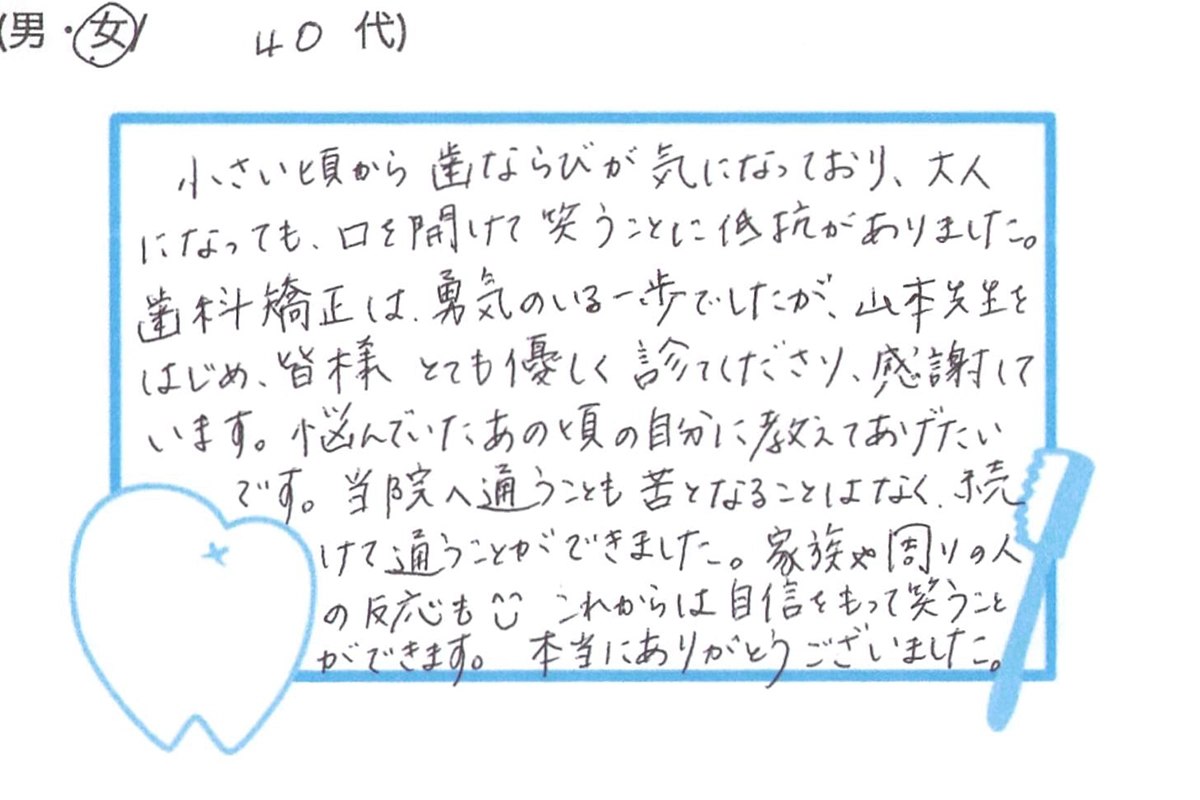 (男・女) 40 代)
小さい頃から歯ならびが気になっており、大人
になっても、口を開けて笑うことに低抗がありました。
歯科矯正は、勇気のいる一歩でしたが、山本先生を
はじめ、皆様 とても優しく診てくださり、感謝して
います。悩んでいたあの頃の自分に教えてあげたい
です。当院へ通うことも苦となることはなく、続
けて通うことができました。家族や周りの人
の反応も これからは自信をもって笑うこと
ができます。 本当にありがとうございました。